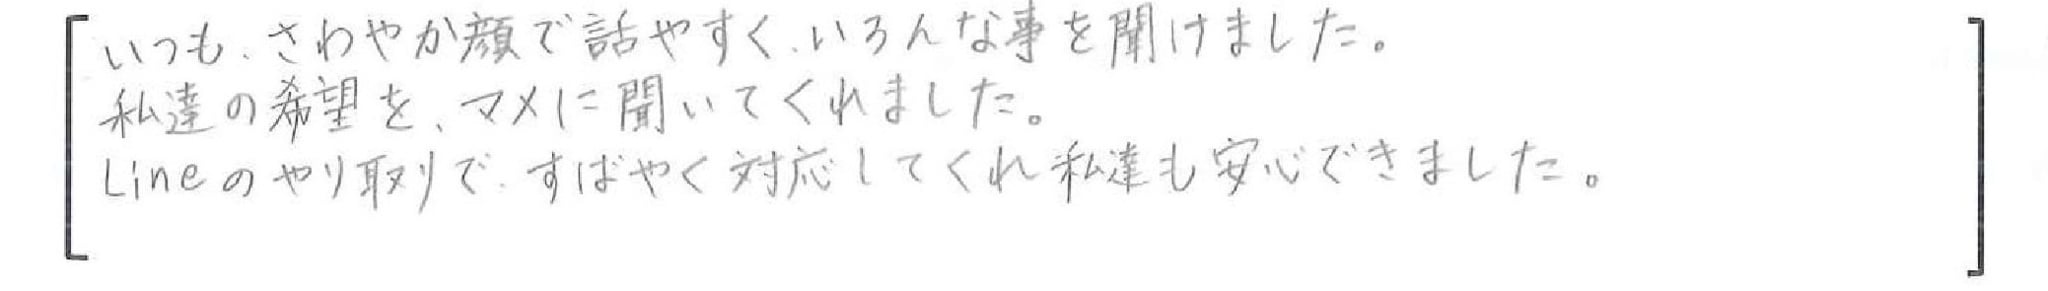 いつも、さわやか顔で話やすく、いろんな事を聞けました。
私達の希望を、マメに聞いてくれました。
Lineのやり取りで、すばやく対応してくれ私達も安心できました。